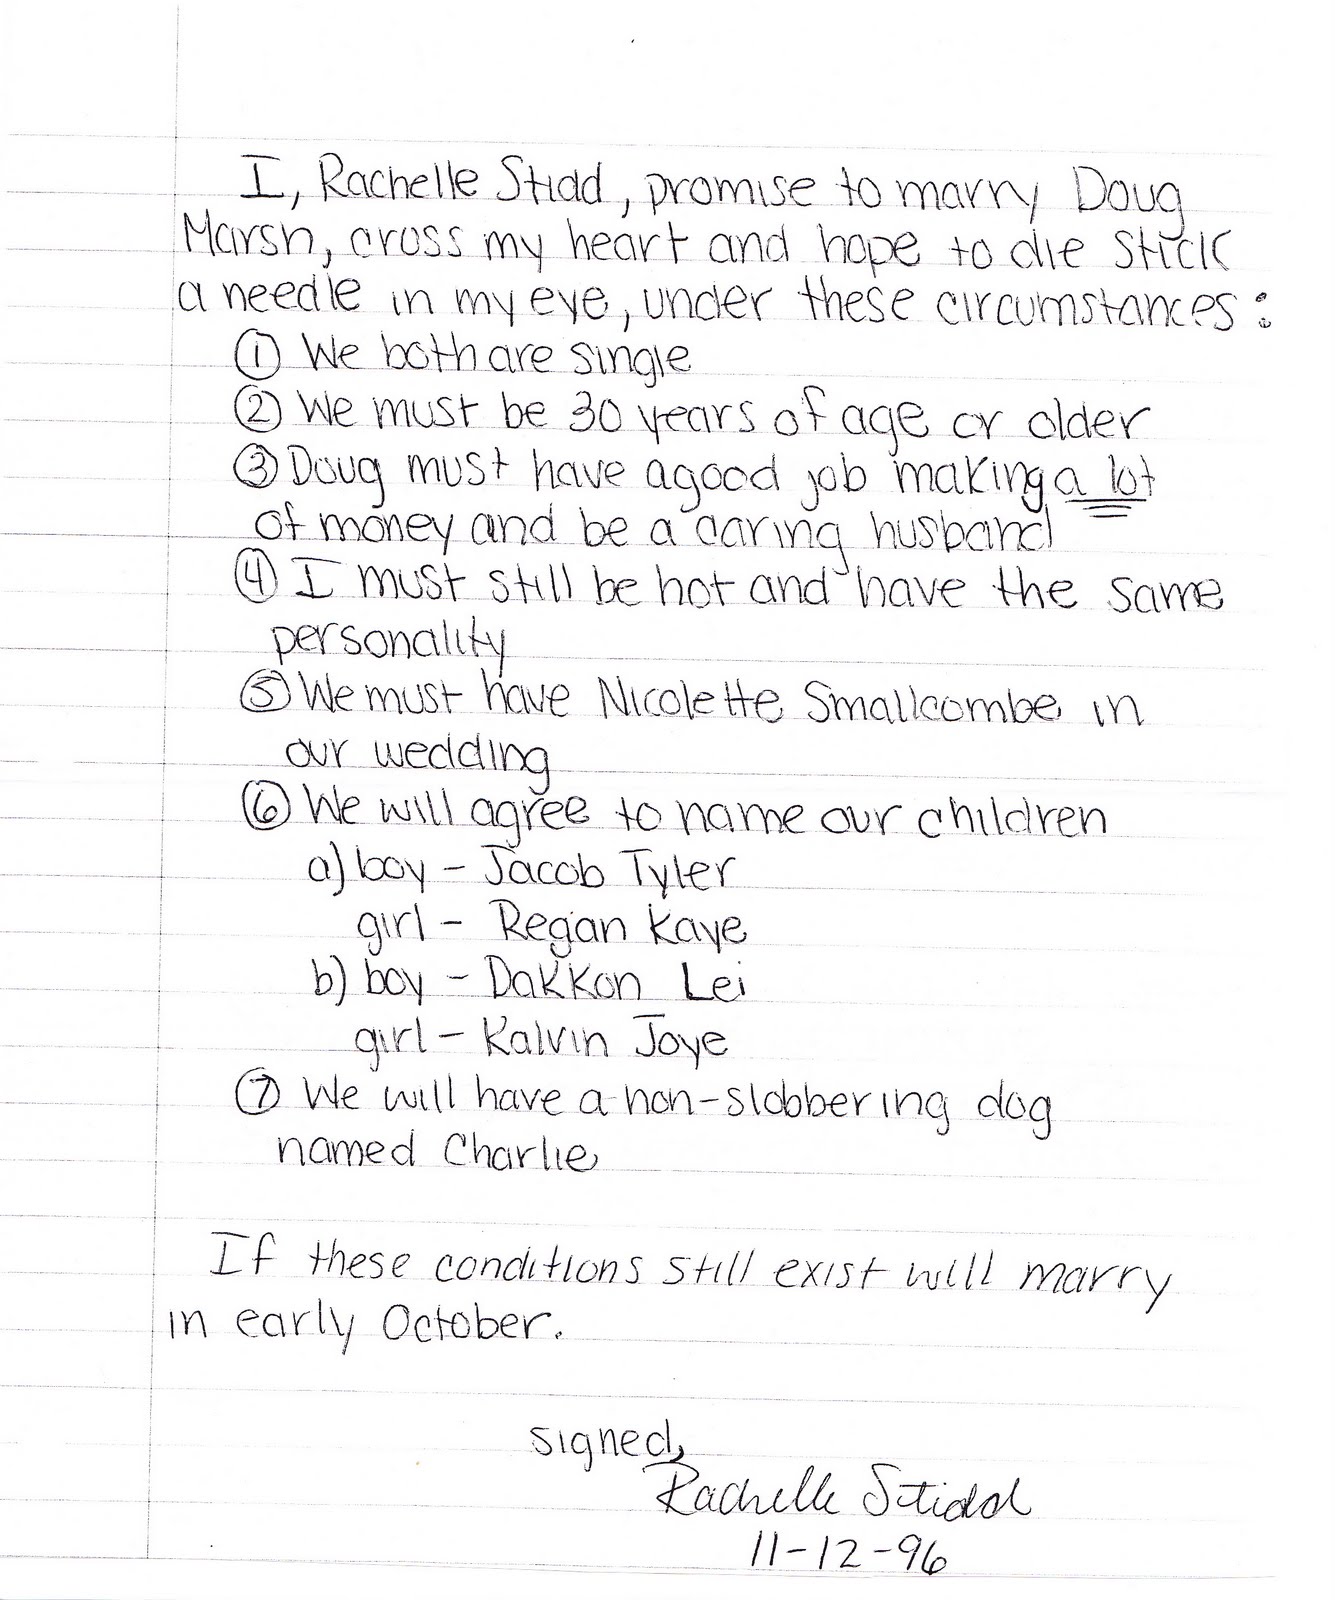 I, Rachelle Stidd, promise to marry Doug
Marsh, cross my heart and hope to die stick
a needle in my eye, under these circumstances:
① We both are single
② We must be 30 years of age or older
③ Doug must have a good job making a lot
of money and be a caring husband
④ I must still be hot and have the same
personality
⑤ We must have Nicolette Smallcombe in
our wedding
⑥ We will agree to name our children
a) boy - Jacob Tyler
girl - Regan Kaye
b) boy - Dakkon Lei
girl - Kalvin Joye
⑦ We will have a non-slobbering dog
named Charlie
If these conditions still exist will marry
in early October.
signed,
Rachelle Stidd
11-12-96